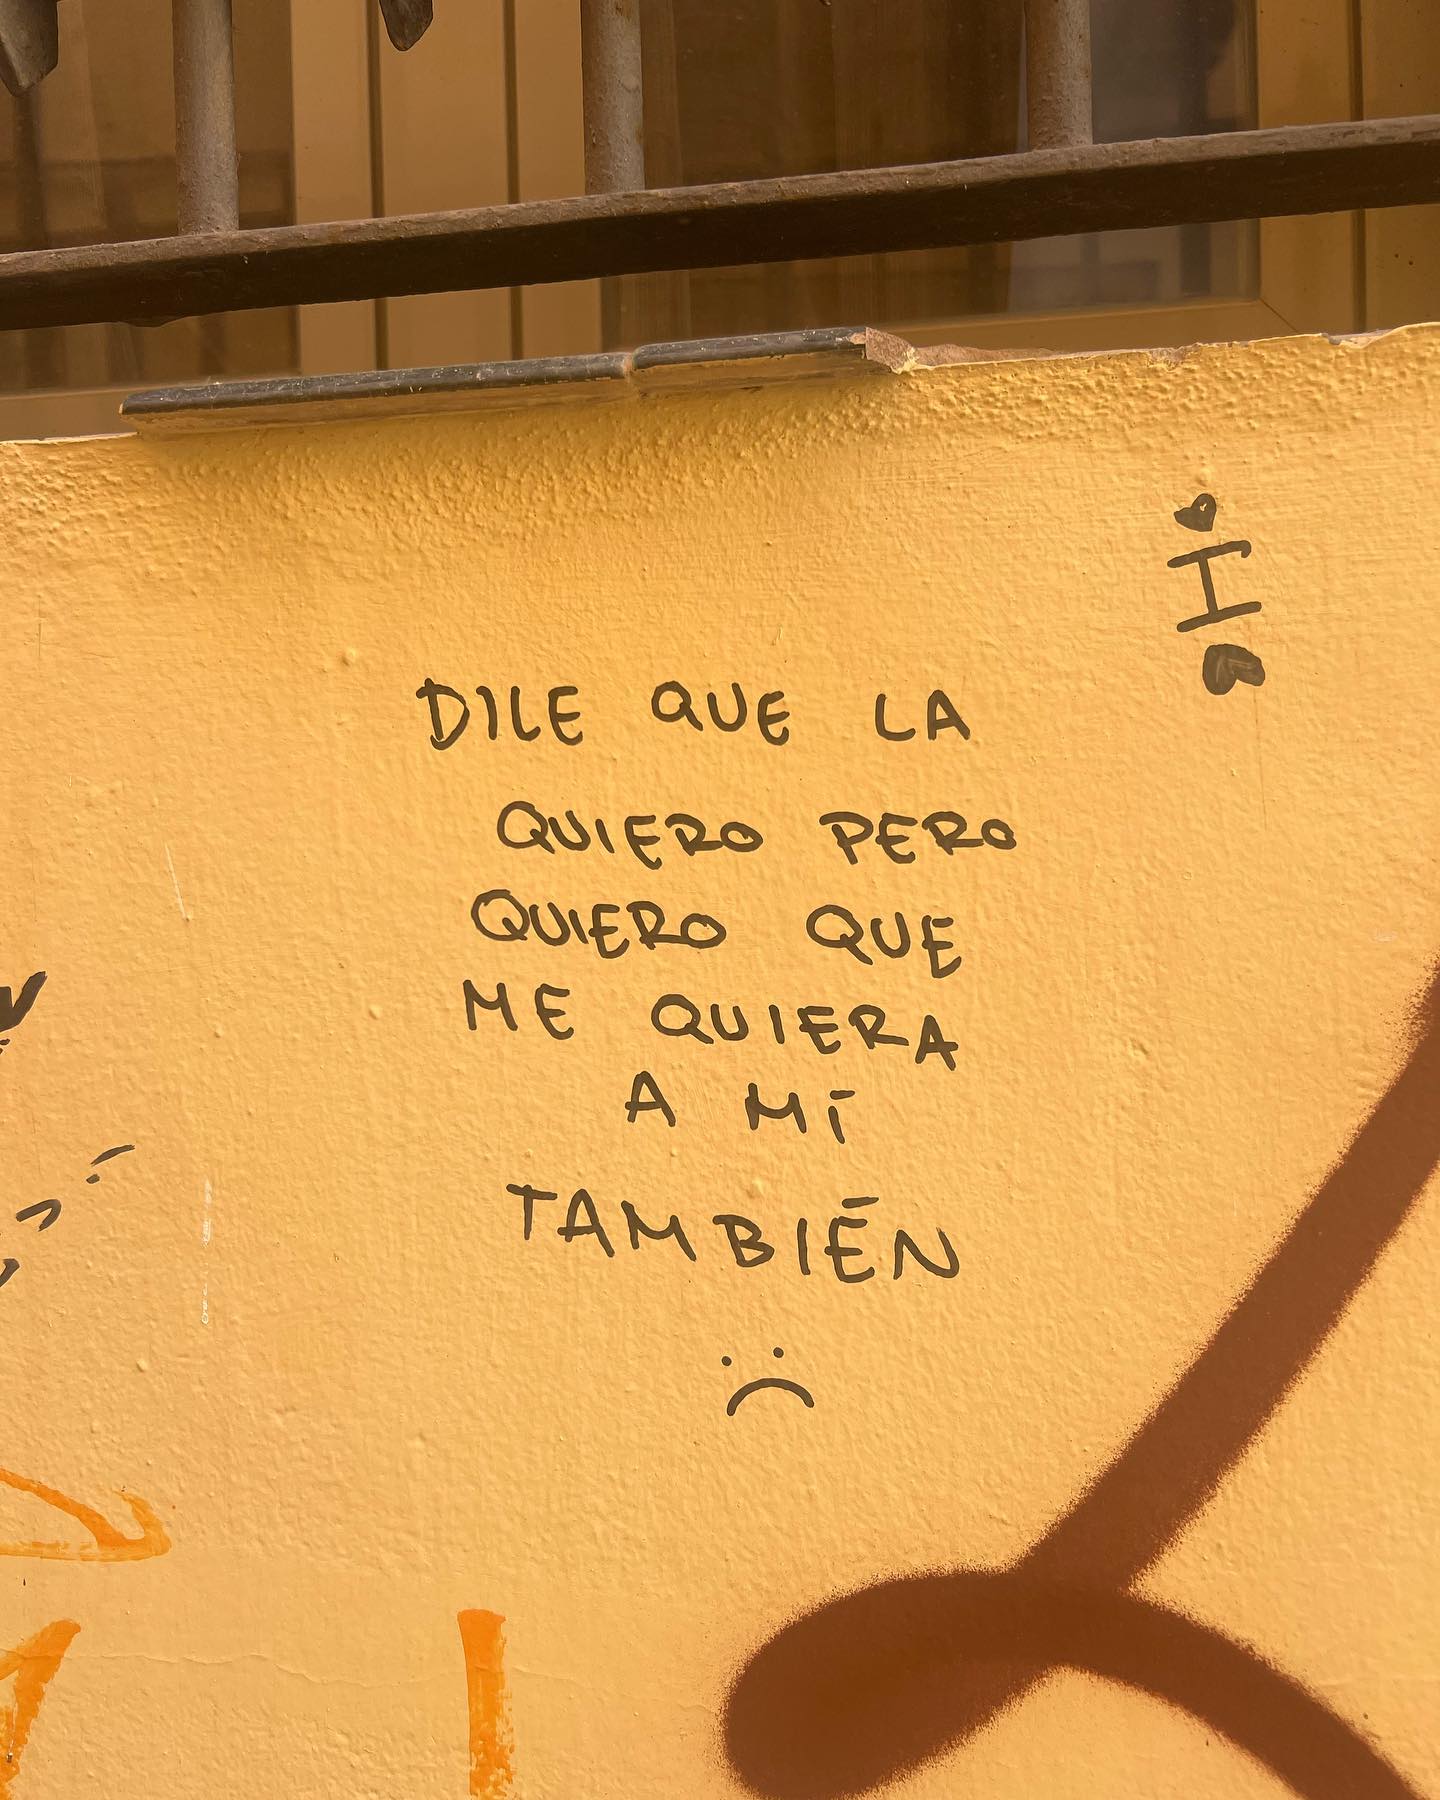 I
DILE QUE LA
QUIERO PERO
QUIERO QUE
ME QUIERA
A MÍ
TAMBIÉN